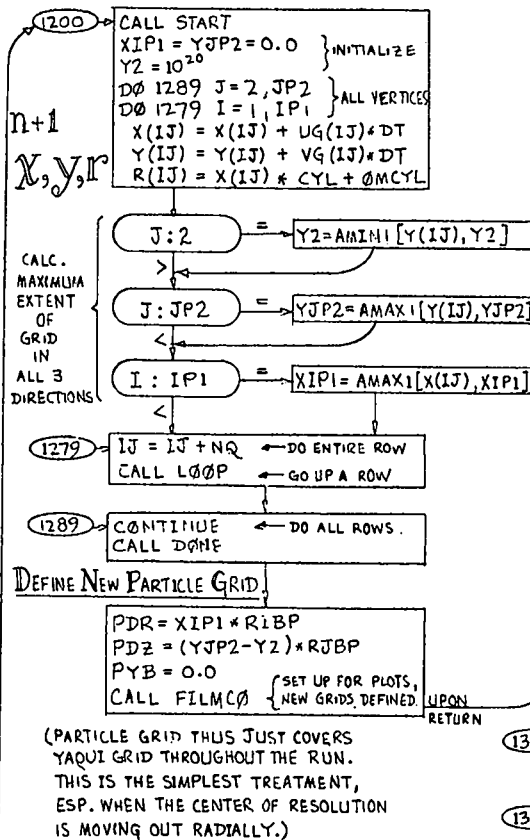 1200
CALL START
XIP1 = YJP2 = 0.0
Y2 = 10²⁰
} INITIALIZE
DØ 1289 J = 2, JP2
DØ 1279 I = 1, IP1
} ALL VERTICES
X(IJ) = X(IJ) + UG(IJ)*DT
Y(IJ) = Y(IJ) + VG(IJ)*DT
R(IJ) = X(IJ) * CYL + ØMCYL
n+1
X,Y,r
CALC.
MAXIMUM
EXTENT
OF
GRID
IN
ALL 3
DIRECTIONS
J:2
=
Y2=AMIN1[Y(IJ),Y2]
>
J:JP2
=
YJP2=AMAX1[Y(IJ),YJP2]
<
I:IP1
=
XIP1=AMAX1[X(IJ),XIP1]
<
1279
IJ = IJ + NQ ← DO ENTIRE ROW
CALL LØØP ← GO UP A ROW
1289
CØNTINUE ← DO ALL ROWS.
CALL DØNE
DEFINE NEW PARTICLE GRID
PDR = XIP1 * RIBP
PDZ = (YJP2-Y2) * RJBP
PYB = 0.0
CALL FILMCØ { SET UP FOR PLOTS,
NEW GRIDS DEFINED.
UPON
RETURN
(PARTICLE GRID THUS JUST COVERS
YAQUI GRID THROUGHOUT THE RUN.
THIS IS THE SIMPLEST TREATMENT,
ESP. WHEN THE CENTER OF RESOLUTION
IS MOVING OUT RADIALLY.)
13
13